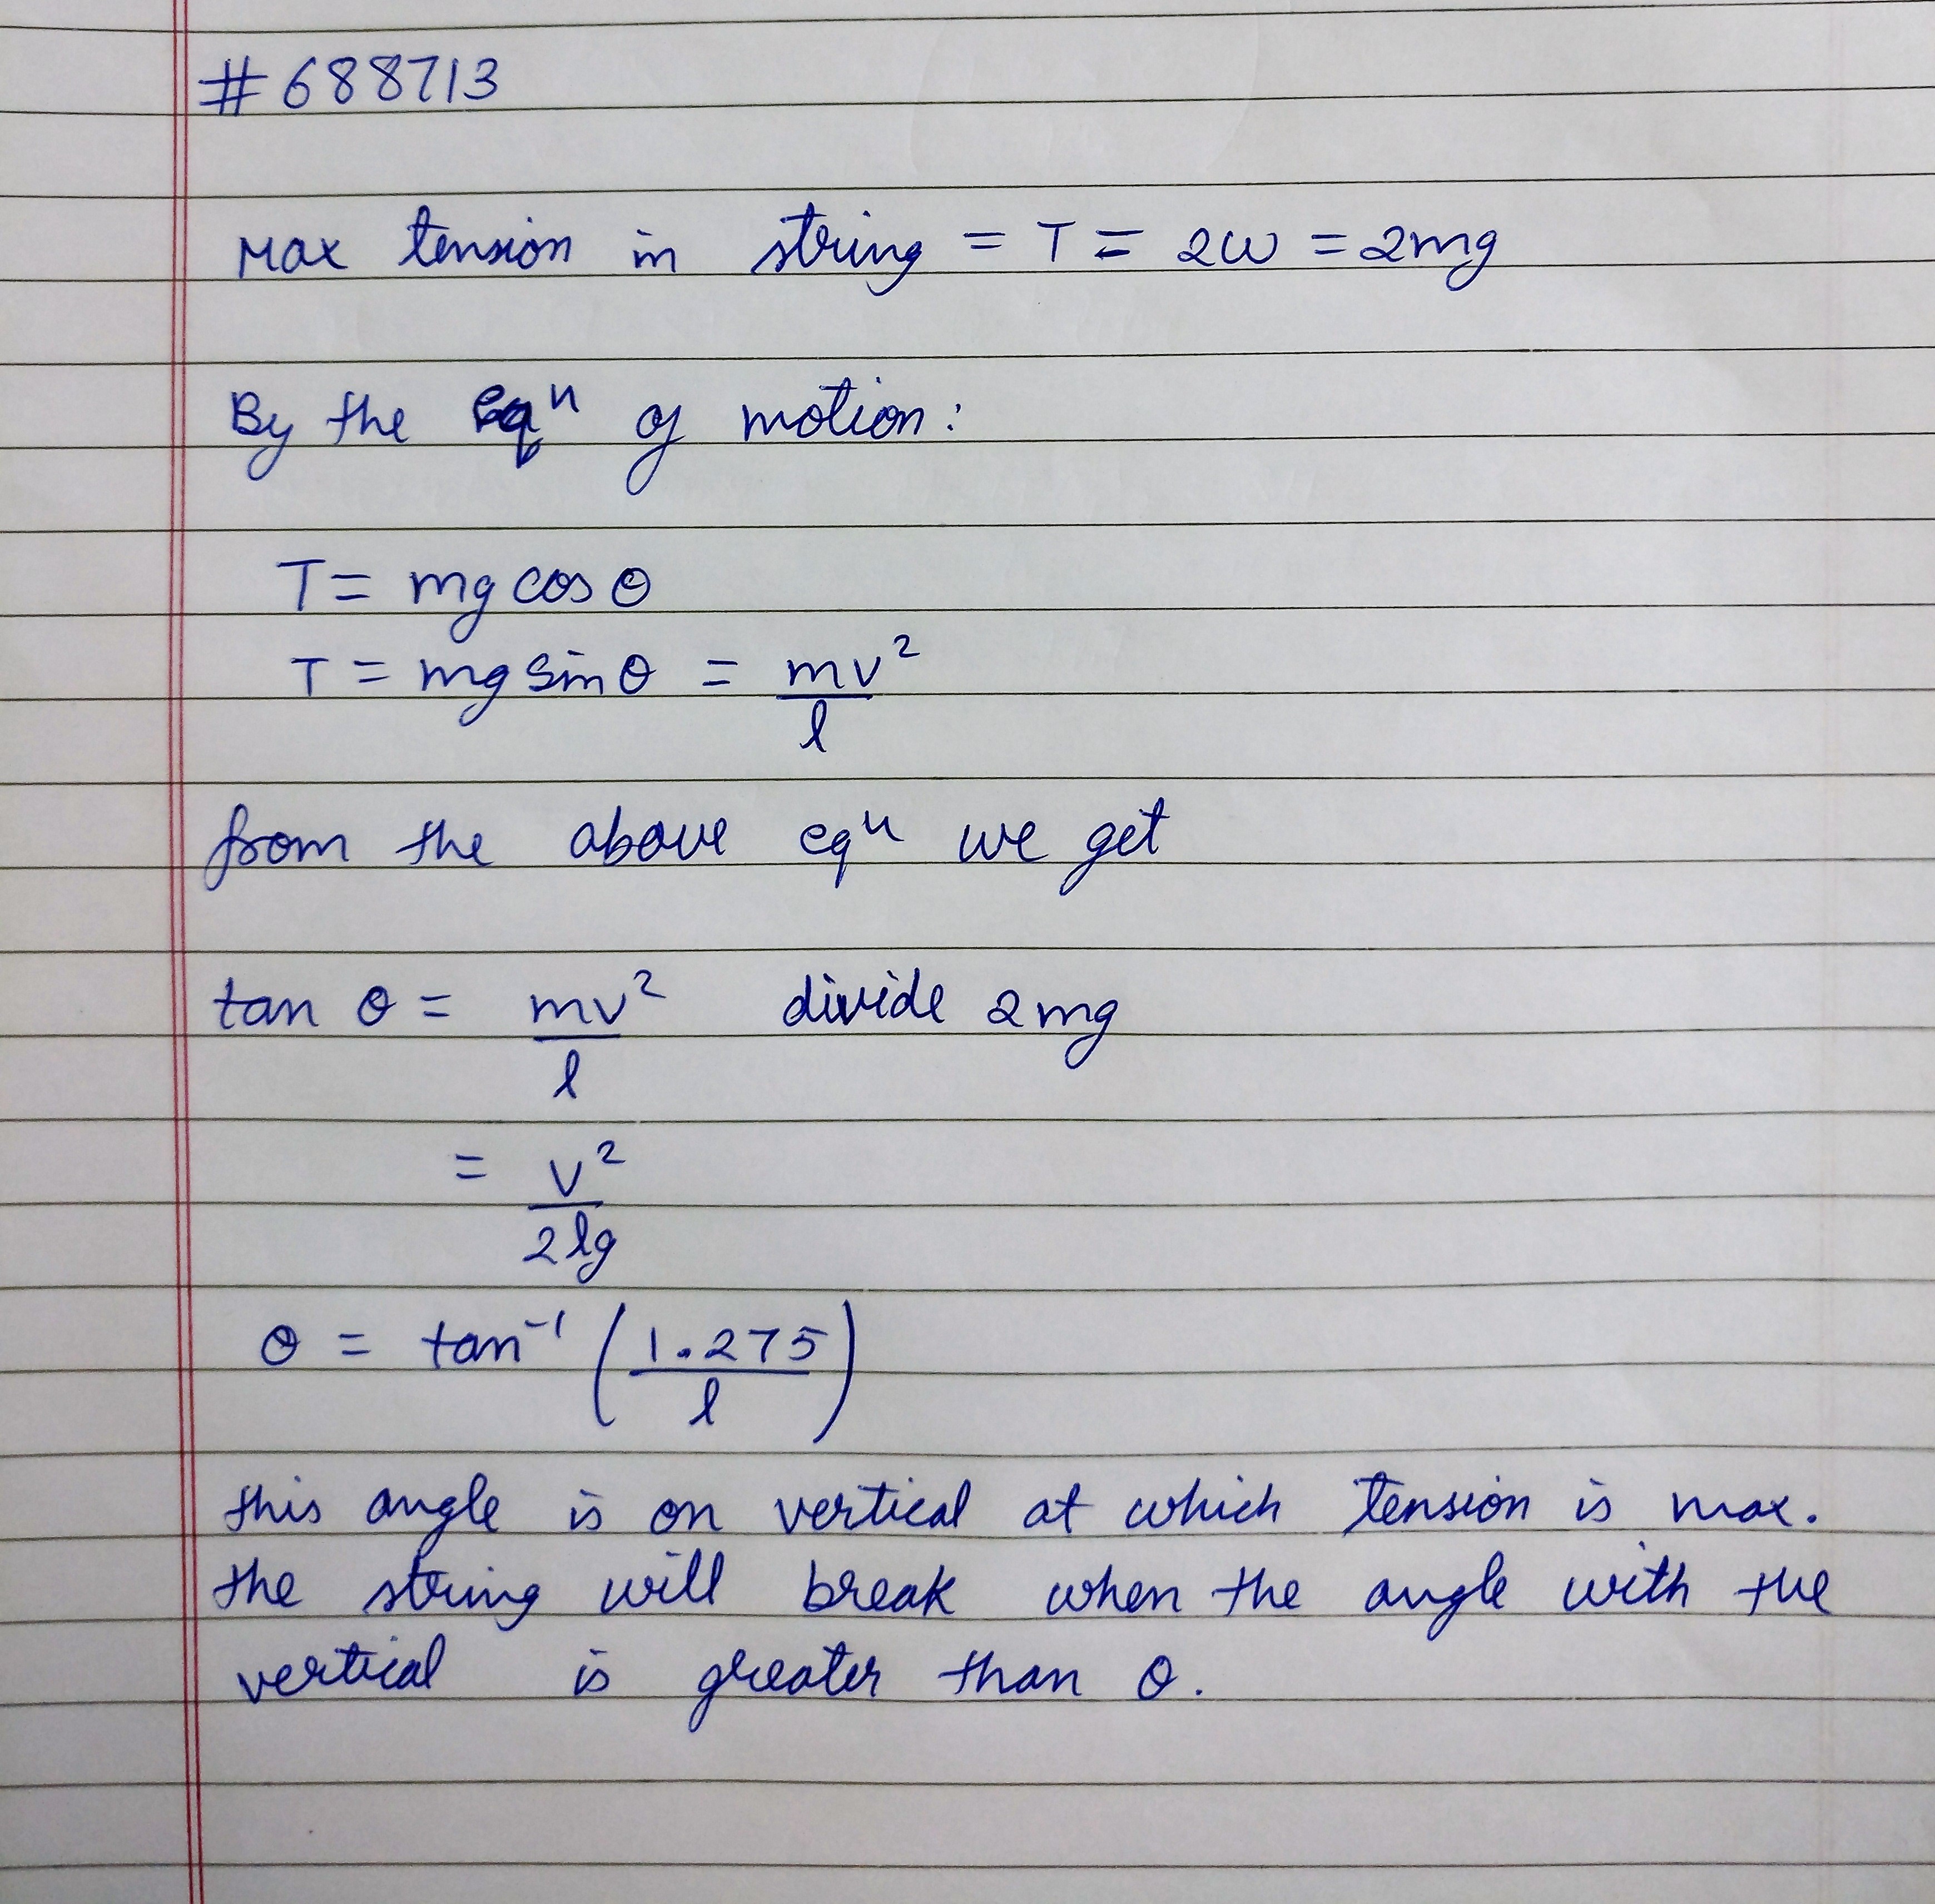 # 688713
Max tension in string = T = 2W = 2mg
By the eqⁿ of motion:
T = mg cos θ
T = mg sin θ = mv²/l
from the above eqⁿ we get
tan θ = mv²/l divide 2mg
= v²/2lg
θ = tan⁻¹ (1.275/l)
this angle is on vertical at which tension is max.
the string will break when the angle with the
vertical is greater than θ.